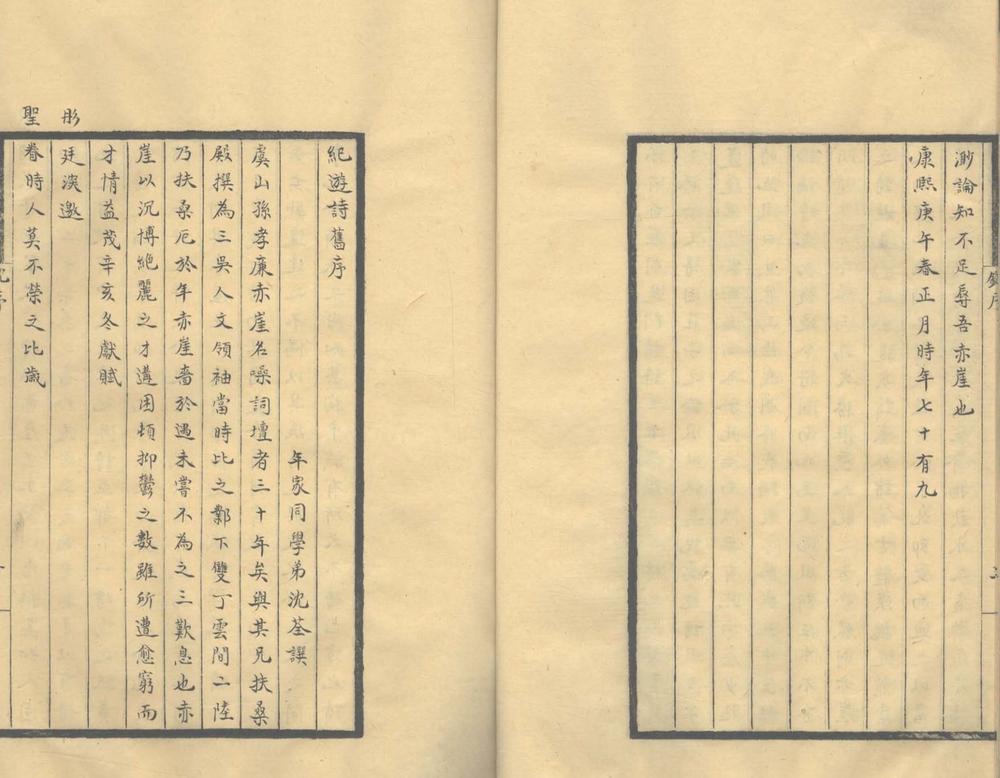 渺論知不足辱吾赤崖也
康熙庚午春正月時年七十有九
紀遊詩舊序
年家同學弟沈荃譔
虞山孫孝廉赤崖名噪詞壇者三十年矣與其兄扶桑
殿撰為三吳人文領袖當時比之鄴下雙丁雲間二陸
乃扶桑厄於年赤崖嗇於遇未嘗不為之三歎息也赤
崖以沉博絕麗之才遘困頓抑鬱之數雖所遭愈窮而
才情益茂辛亥冬獻賦
彤廷渙邀
聖眷時人莫不榮之比歲